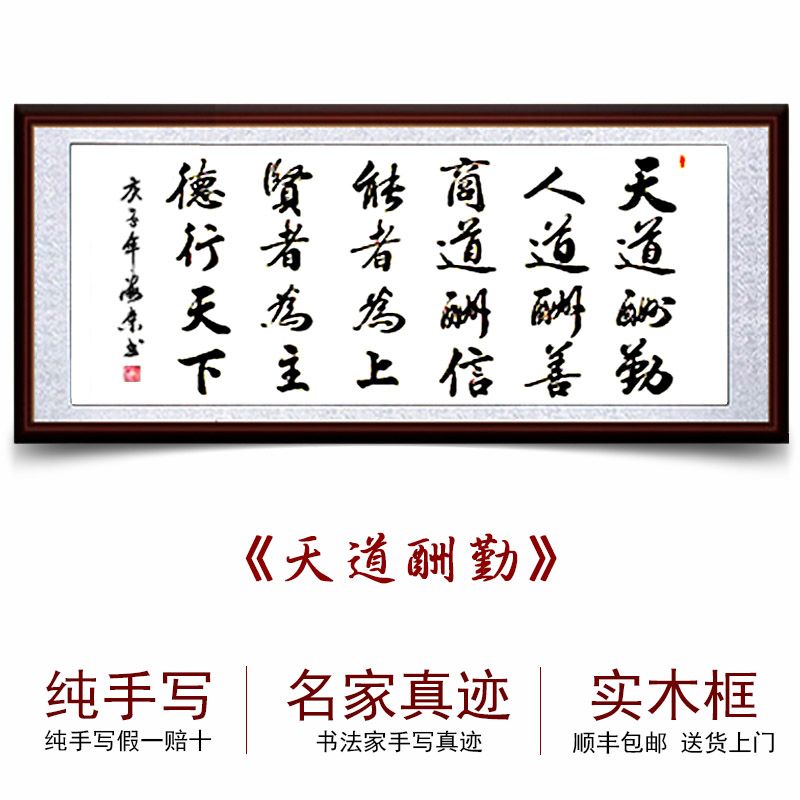 天道酬勤
人道酬善
商道酬信
能者為上
賢者為主
德行天下
庚子年海東书
《天道酬勤》
纯手写
纯手写假一赔十
名家真迹
书法家手写真迹
实木框
顺丰包邮 送货上门